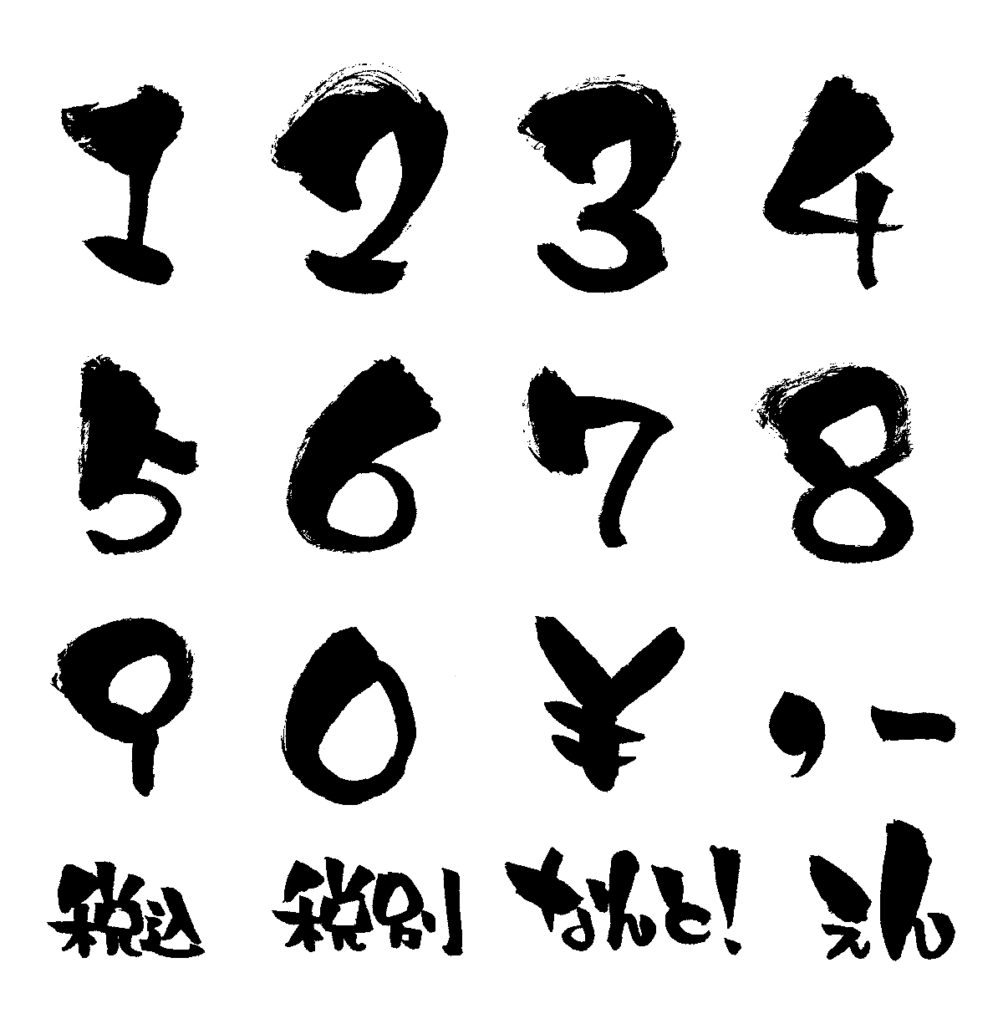 1 2 3 4
5 6 7 8
9 0 ¥ , -
税込 税別 なんと! えん